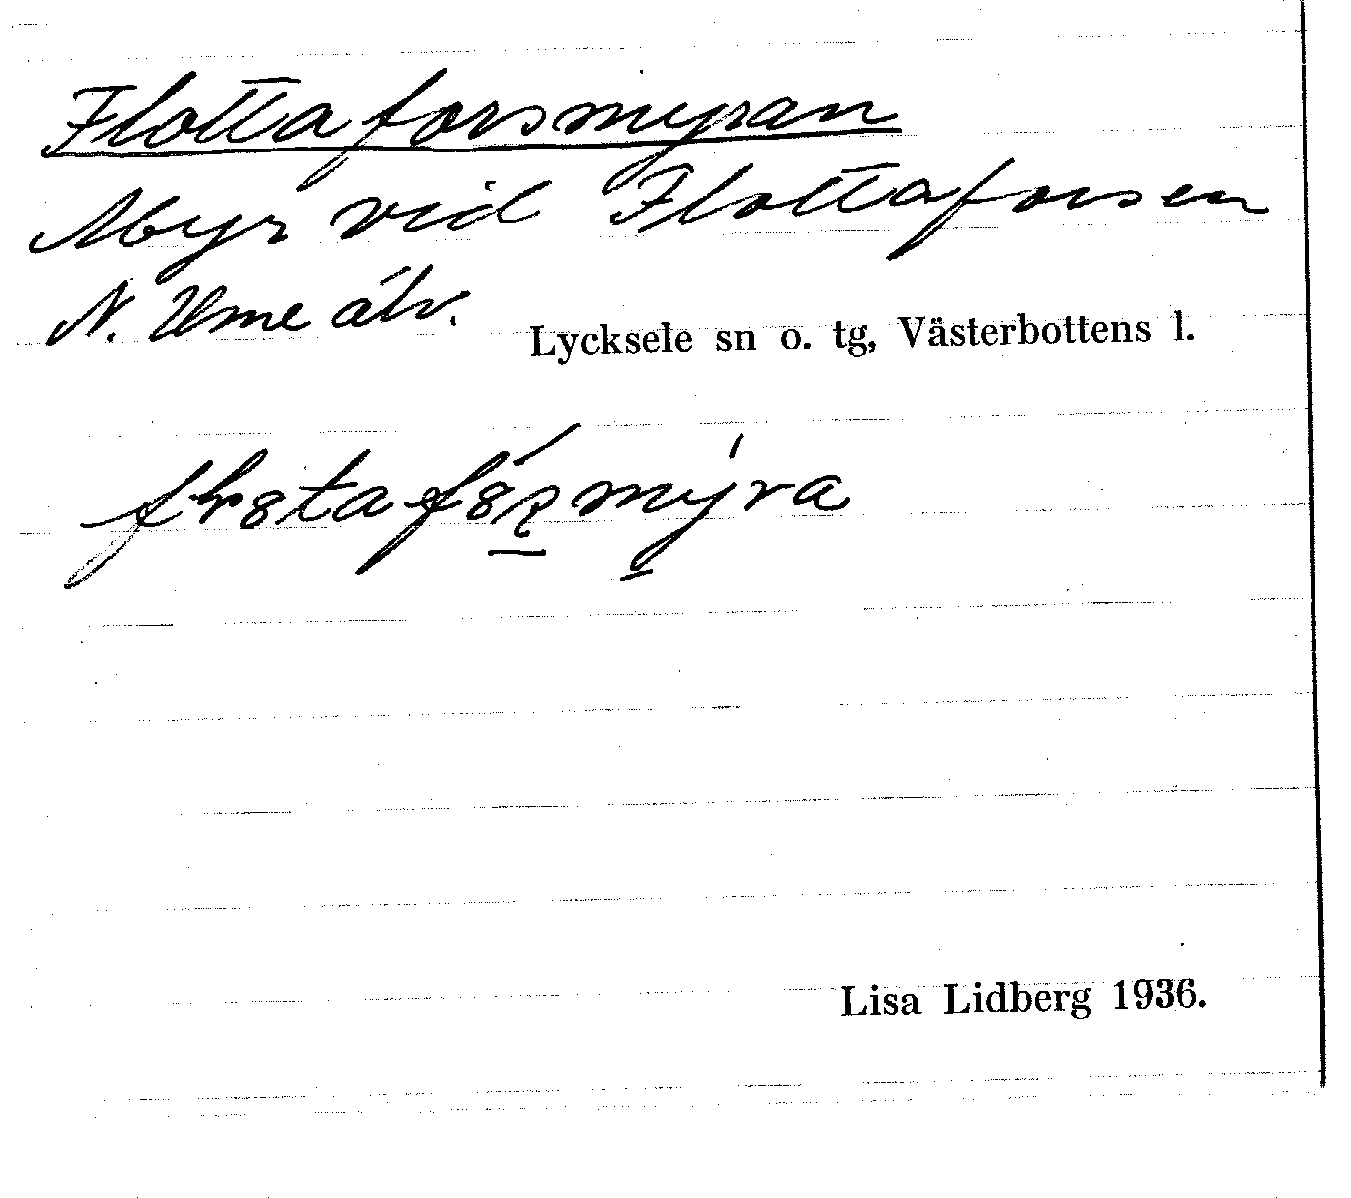 Flottaforsmyran
Myr vid Flottaforsen
N. Ume älv.
Lycksele sn o. tg, Västerbottens l.
Lisa Lidberg 1936.